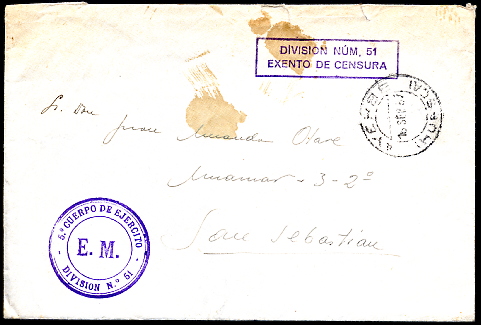 DIVISION NÚM, 51
EXENTO DE CENSURA
Sr. Don
Juan Miranda
Miramar - 3 - 2º
San Sebastian
5.º CUERPO DE EJERCITO
E. M.
DIVISION N.º 51